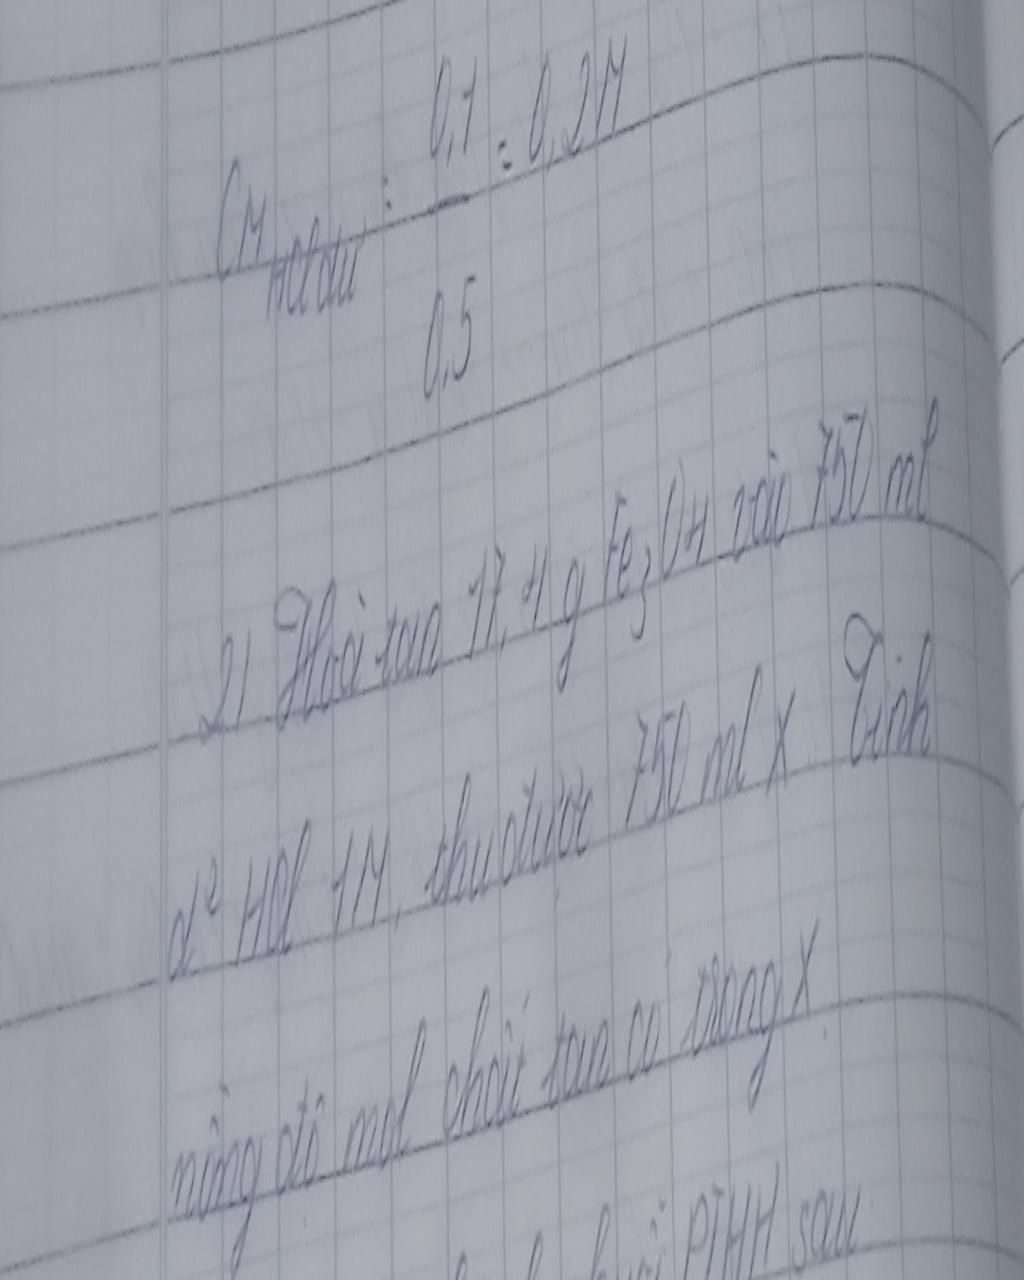 0,1
CM HCl dư = = 0,2M
0,5
2) Hòa tan 17,4 g Fe3O4 vào 750 ml
d² HCl 1M, thu được 750 ml X Tính
nồng độ mol chất tan có trong X.
PTHH sau